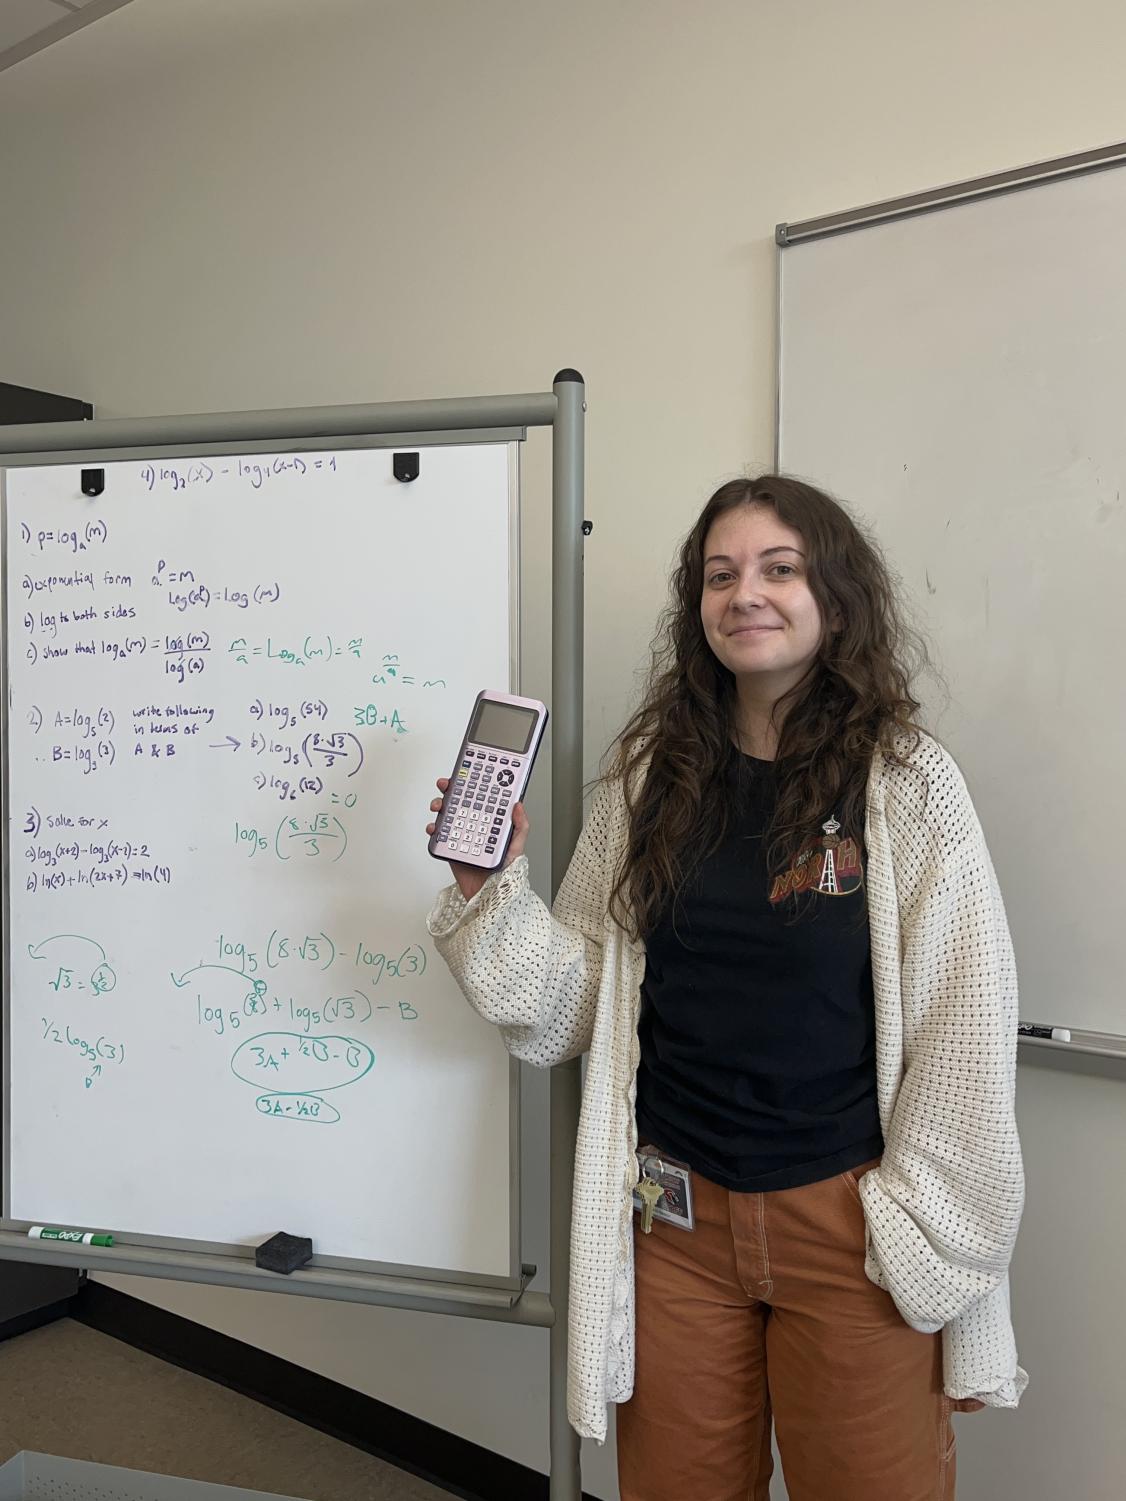 4) log₂(x) - log₄(x-1) = 1
1) p=logₐ(m)
a) exponential form aᵖ = m
Log(aᵖ) = Log(m)
b) log to both sides
c) show that logₐ(m) = log(m)/log(a) m/a = Logₐ(m) = m/a
= m
2) A=log₅(2) write following in terms of A & B
B=log₅(3)
a) log₅(54) 3B+A
b) log₅(8·√3/3)
c) log₆(12) = 0
log₅(8·√3/3)
3) Solve for x
a) log₃(x+2) - log₃(x-2) = 2
b) ln(x) + ln(2x+7) = ln(4)
log₅(8·√3) - log₅(3)
√3 = 3^½
+ log₅(√3) - B
½ log₅(3)
3A + ½B - B
3A - ½B
NORTH
EXPO